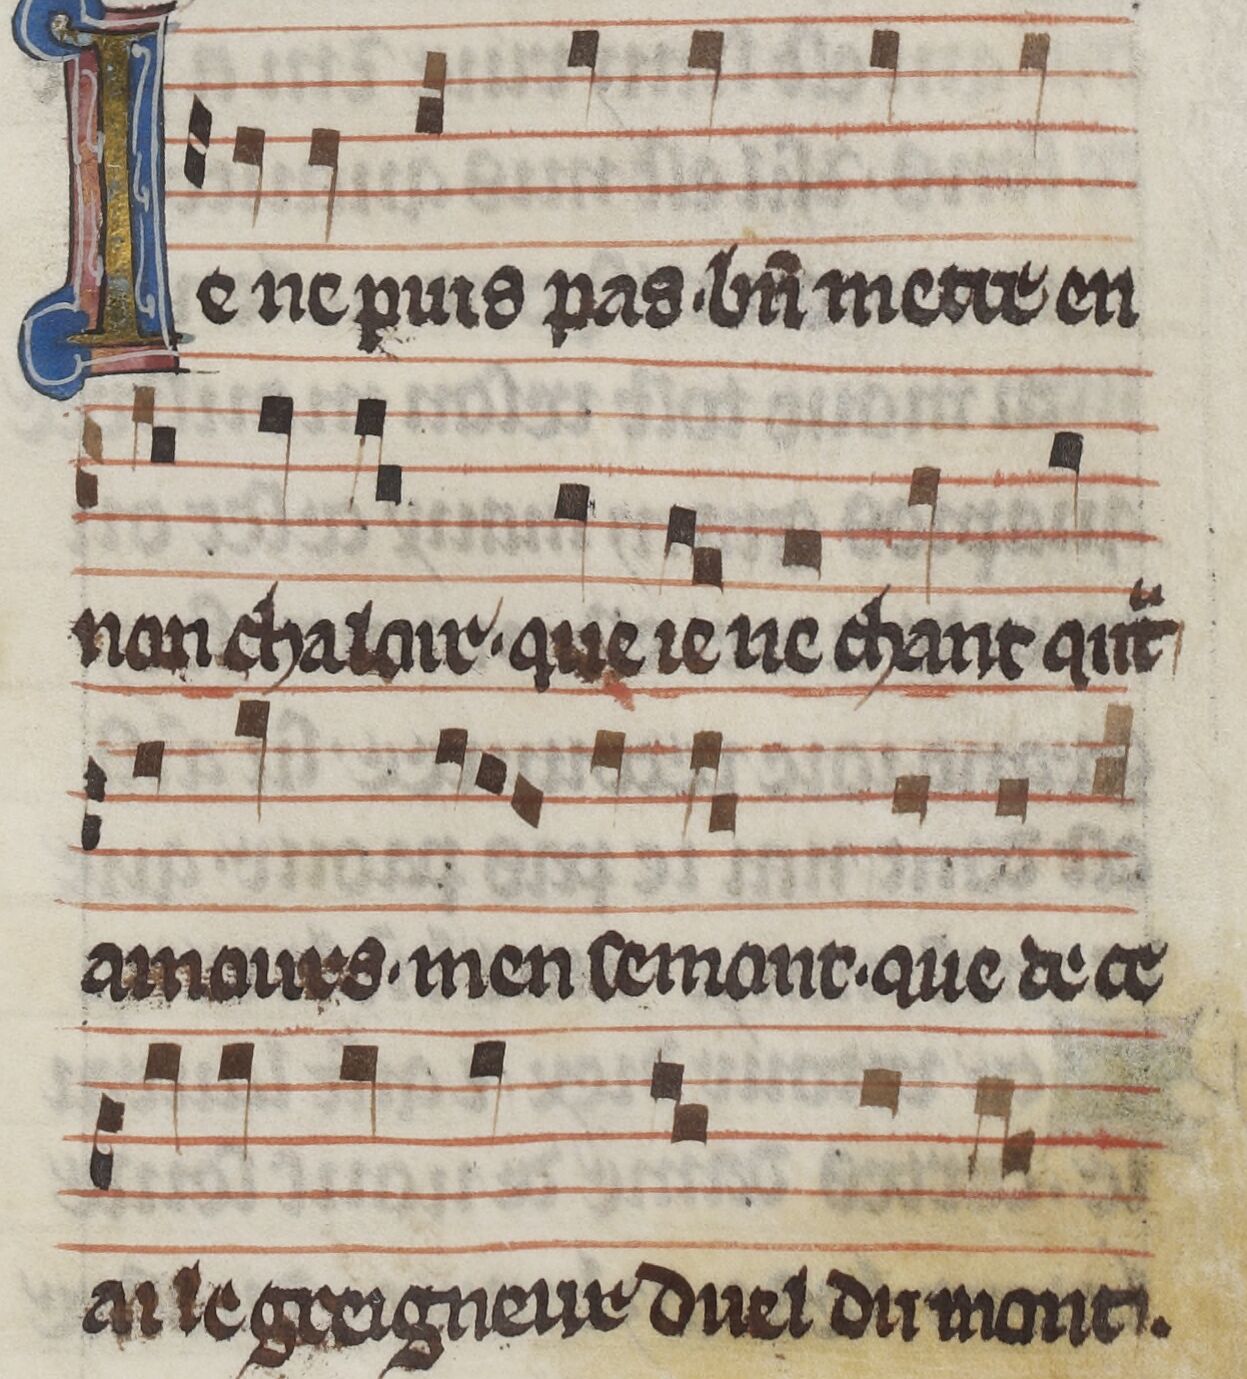 Ie ne puis pas · bn̄ metre en
non chaloir · que ie ne chant qnt̃
amours · men semont · que de ce
ai le greigneur duel du mont ·